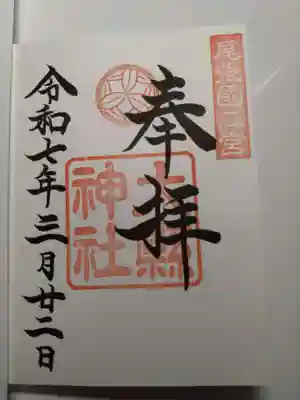 尾張国二之宮
奉拝
大縣神社
令和七年三月廿二日